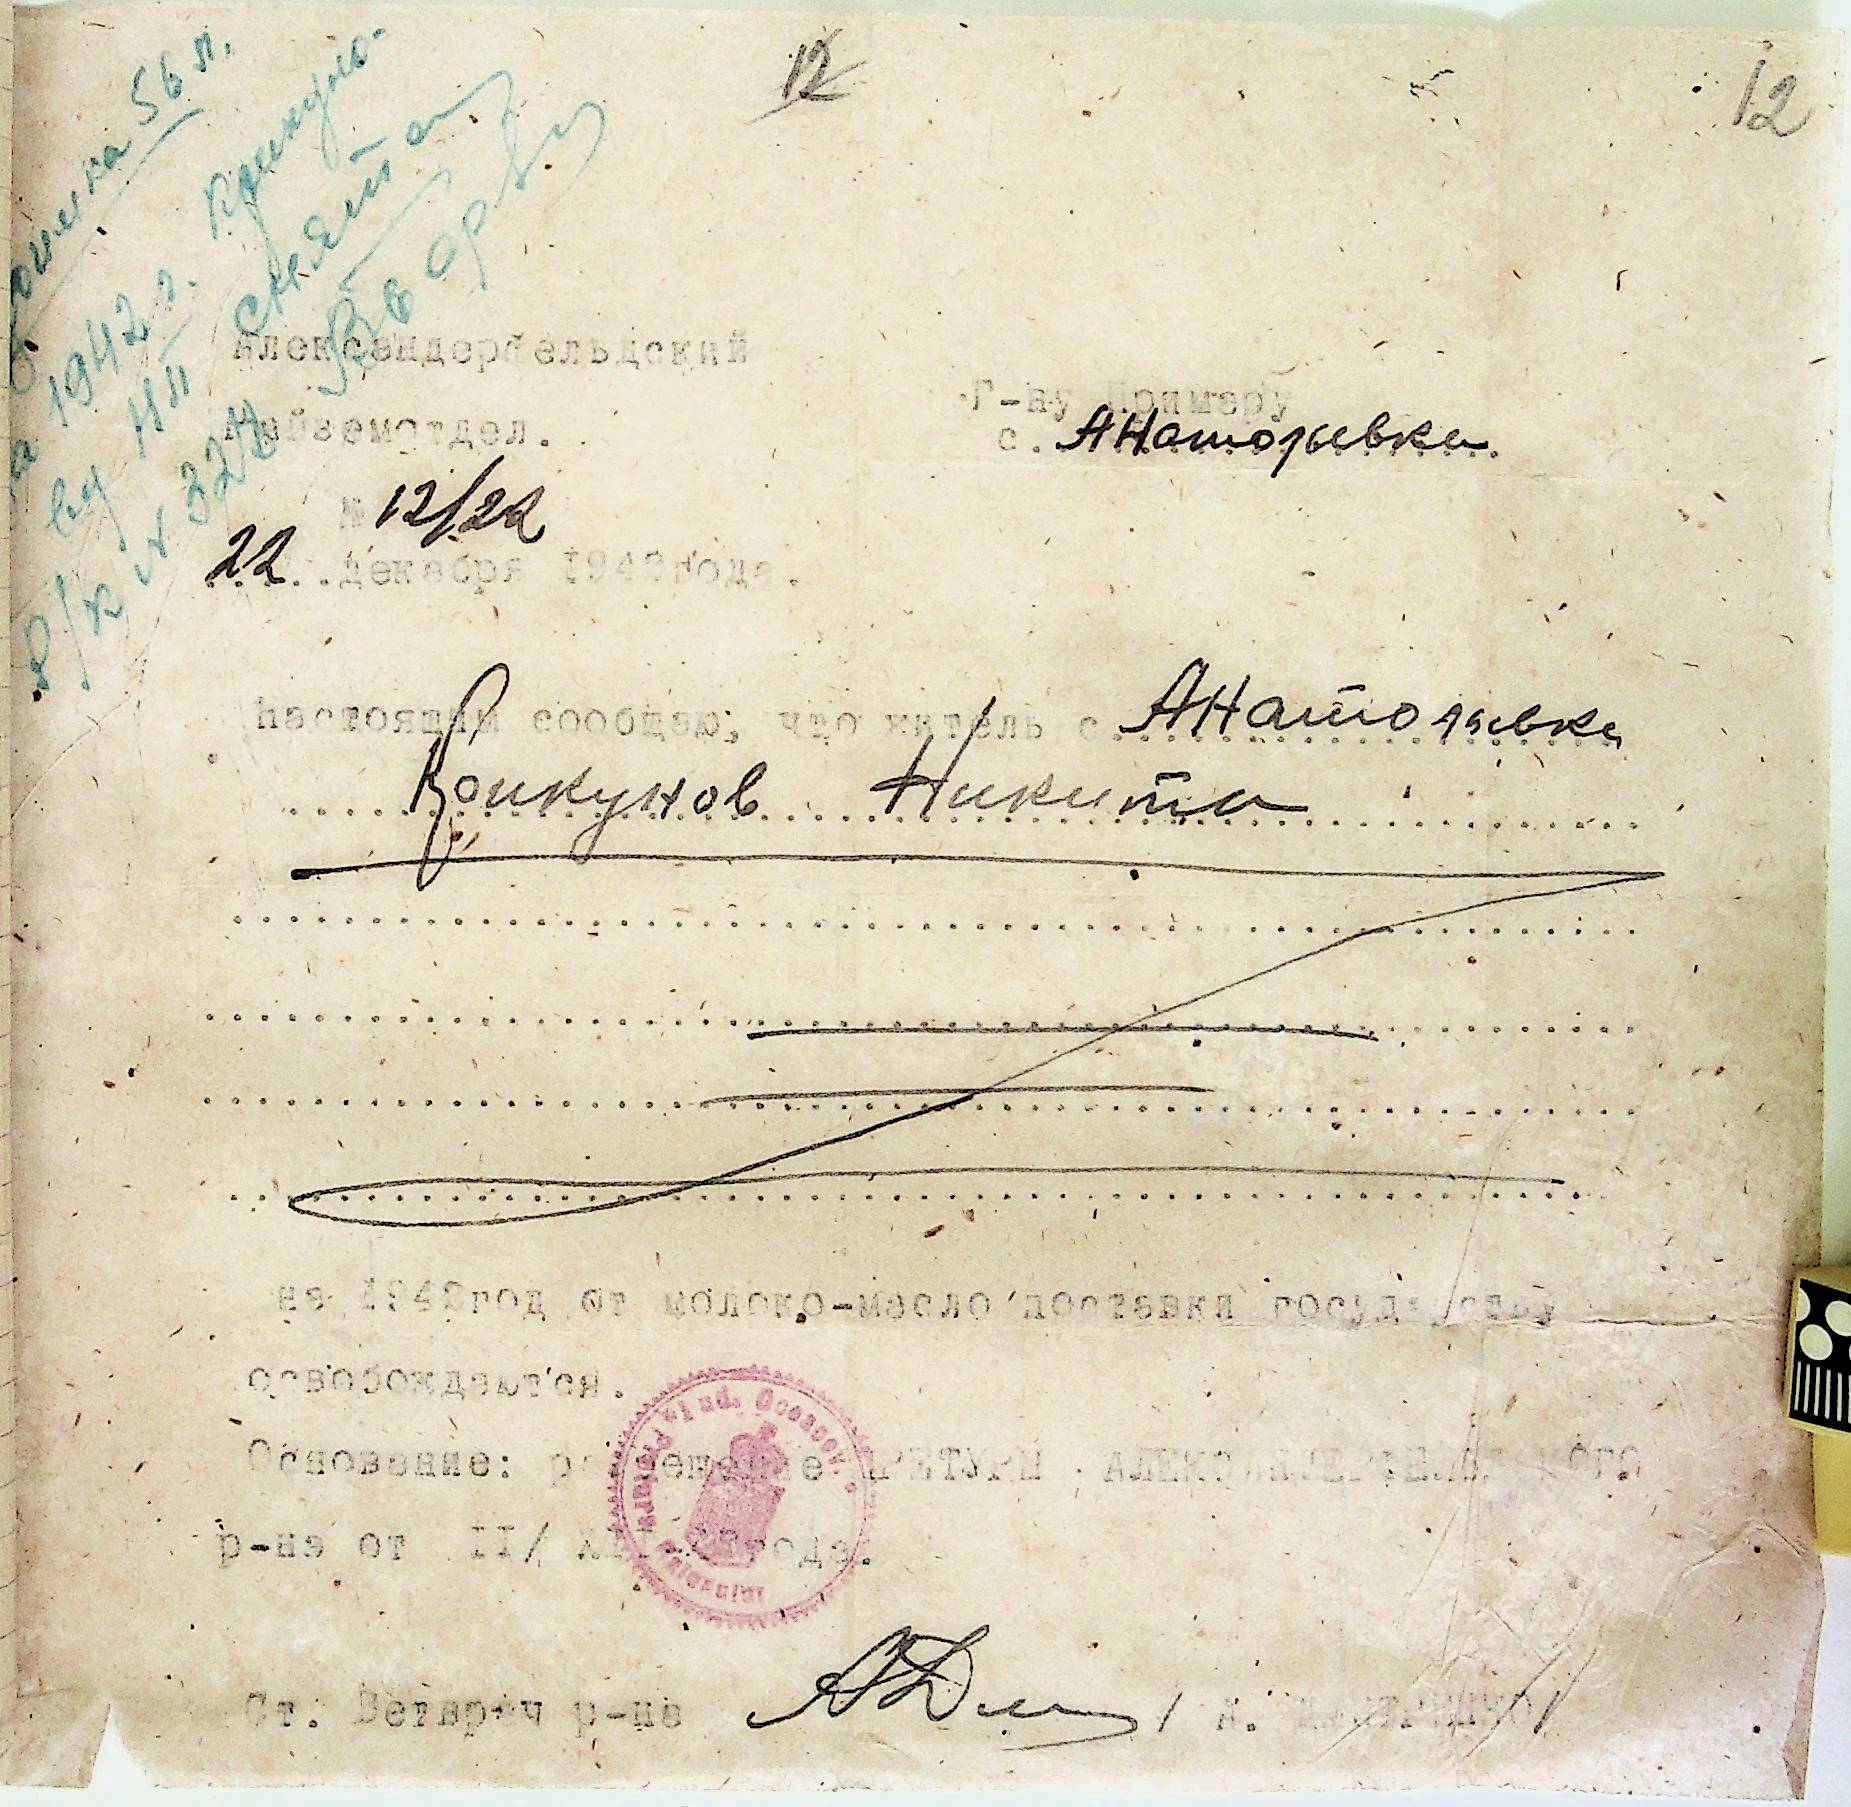 12
12
56 л.
1942 г. Крикуно-
ву НП снята
р/к № 324
Александерфельдский
Райземотдел.
№ 12/22
22 декабря 1942года.
Г-ну Примеру
с. Анаторьевка
Настоящим сообщаю, что житель с. Анатольевка
Крикунов Никита
на 1942год от молоко-масло поставки государству
освобождается.
Основание: распоряжение ПРЕТУРЫ АЛЕКСАНДЕРФЕЛЬДСКОГО
р-на от II/ XII-42года.
Ст. Ветврач р-на / А. /